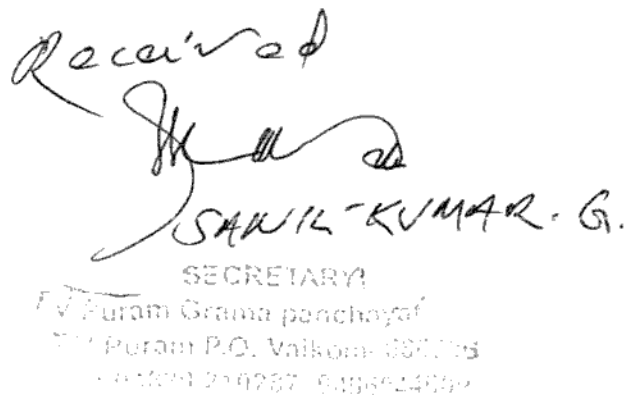 Received
SANIL KUMAR. G.
SECRETARY
T V Puram Grama panchayat
T V Puram P.O. Vaikom